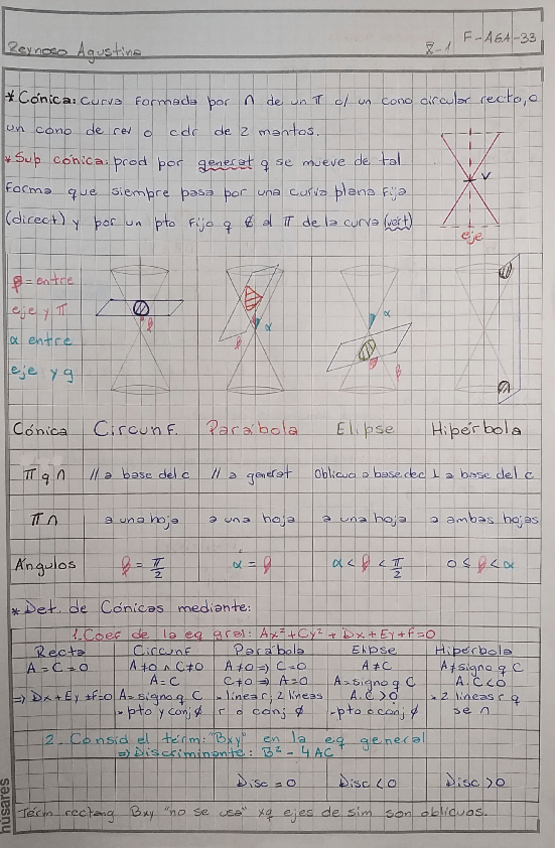 Reynoso Agustina
8-1
F-AGA-33
* Cónica: curva formada por ∩ de un π c/ un cono circular recto, o
un cono de rev o cdr de 2 mantos.
* Sup cónica: prod por generat q se mueve de tal
forma que siempre pasa por una curva plana fija
(direct) y por un pto fijo q ∉ al π de la curva (vért)
V
eje
β = entre
eje y π
α entre
eje y g
β
β α
α β β
Cónica Circunf. Parábola Elipse Hipérbola
π q ∩ // a base del c // a generat Oblicuo a base dec ⊥ a base del c
π ∩ a una hoja a una hoja a una hoja a ambas hojas
Ángulos β = π/2 α = β α < β < π/2 0 ≤ β < α
* Det. de Cónicas mediante:
1. Coef de la eq gral: Ax² + Cy² + Dx + Ey + F = 0
Recta Circunf Parábola Elipse Hipérbola
A = C = 0 A≠0 ∧ C≠0 A≠0 ⇒ C=0 A≠C A≠signo q C
A=C C≠0 ⇒ A=0 A=signo q C A.C<0
⇒ Dx+Ey+F=0 A=signo q C • linear; 2 lineas A.C>0 • 2 lineas r q
• pto y conj ∅ r o conj ∅ • pto o conj ∅ se ∩
2. Consid el térm: "Bxy" en la eq general
⇒ Discriminante: B² - 4AC
Disc = 0 Disc < 0 Disc > 0
Térm rectang Bxy "no se usa" xq ejes de sim son oblicuos.
húsares